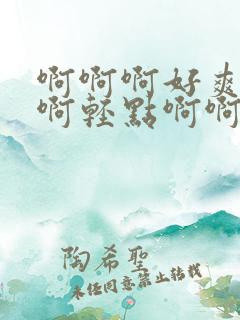 啊啊啊好爽
啊轻點啊啊
陶希聖
未经同意禁止转载